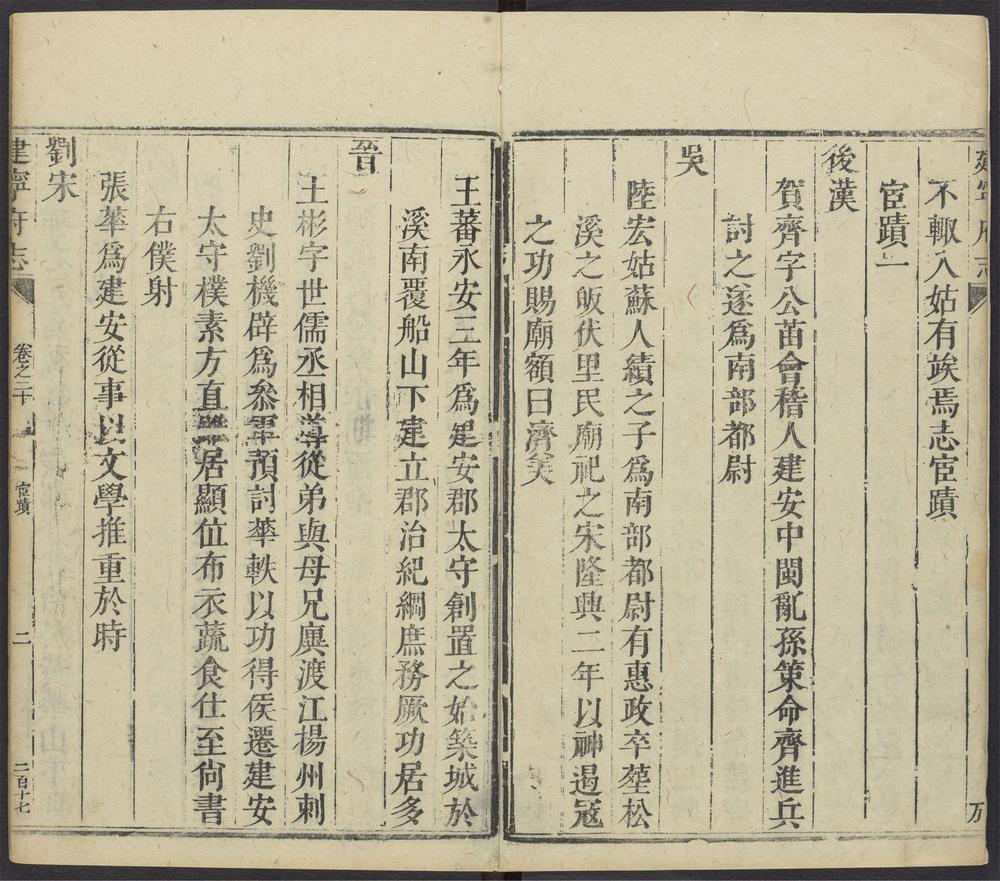 不輙入姑有竢焉志宦蹟
宦蹟一
後漢
賀齊字公苗會稽人建安中閩亂孫策命齊進兵
討之遂爲南部都尉
吳
陸宏姑蘇人績之子爲南部都尉有惠政卒塟松
溪之皈伏里民廟祀之宋隆興二年以神遏寇
之功賜廟額曰濟美
王蕃永安三年爲建安郡太守創置之始築城於
溪南覆船山下建立郡治紀綱庶務厥功居多
晉
王彬字世儒丞相導從弟與母兄廙渡江楊州刺
史劉機辟爲叅軍預討華軼以功得侯遷建安
太守樸素方直雖居顯位布衣蔬食仕至尙書
右僕射
張華爲建安從事以文學推重於時
劉宋
建寧府志
卷之二十
宦蹟
二
二百十七